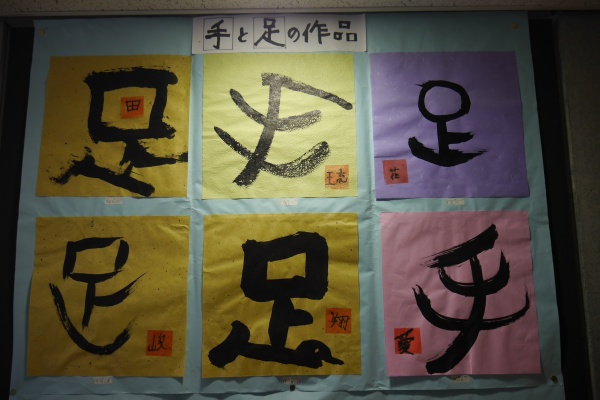 手と足の作品
足
田
手
足
荘
足
峻
足
翔
手
愛